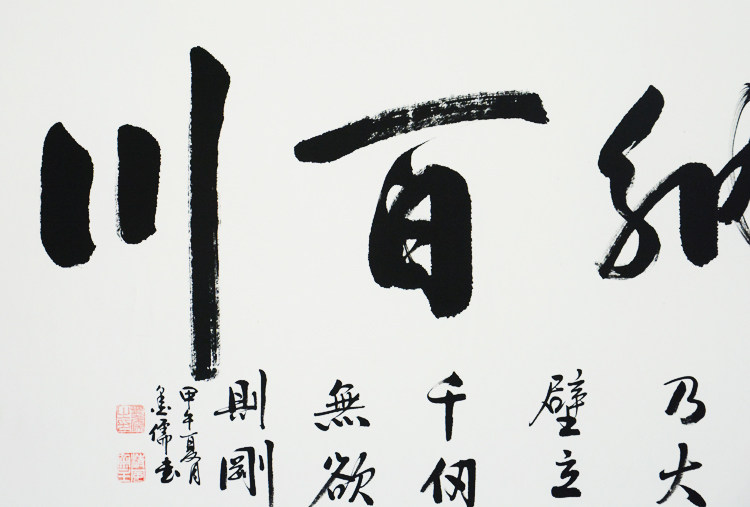 納百川
乃大
壁立
千仞
無欲
則剛
甲午夏月
墨儒書